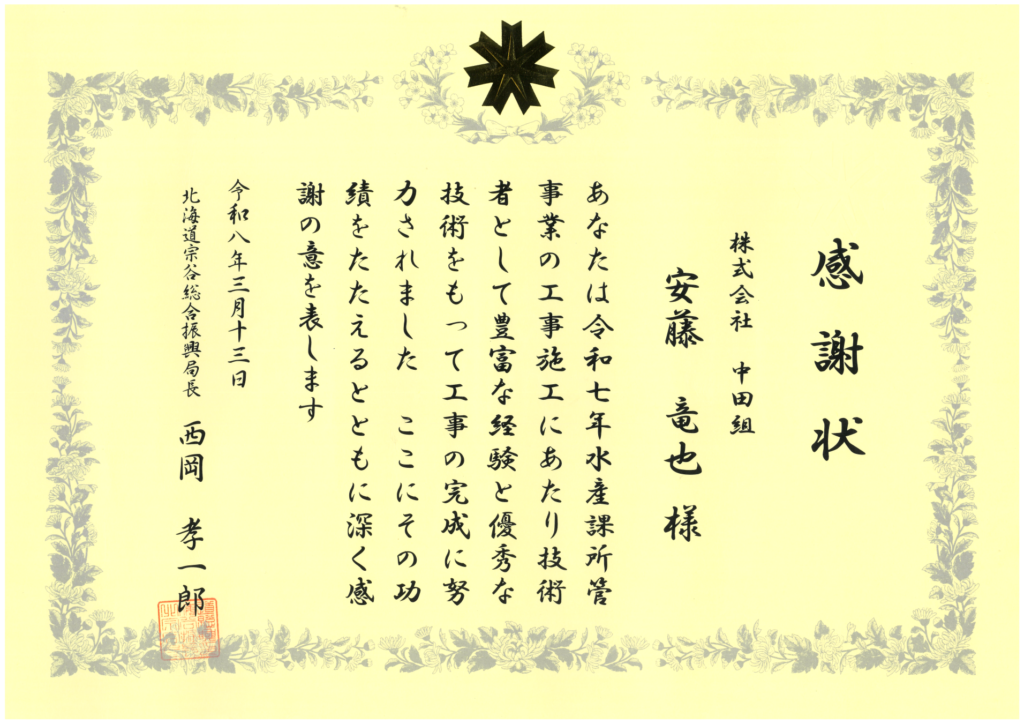 感謝状
株式会社 中田組
安藤 竜也 様
あなたは令和七年水産課所管
事業の工事施工にあたり技術
者として豊富な経験と優秀な
技術をもって工事の完成に努
力されました ここにその功
績をたたえるとともに深く感
謝の意を表します
令和八年三月十三日
北海道宗谷総合振興局長 西岡 孝一郎